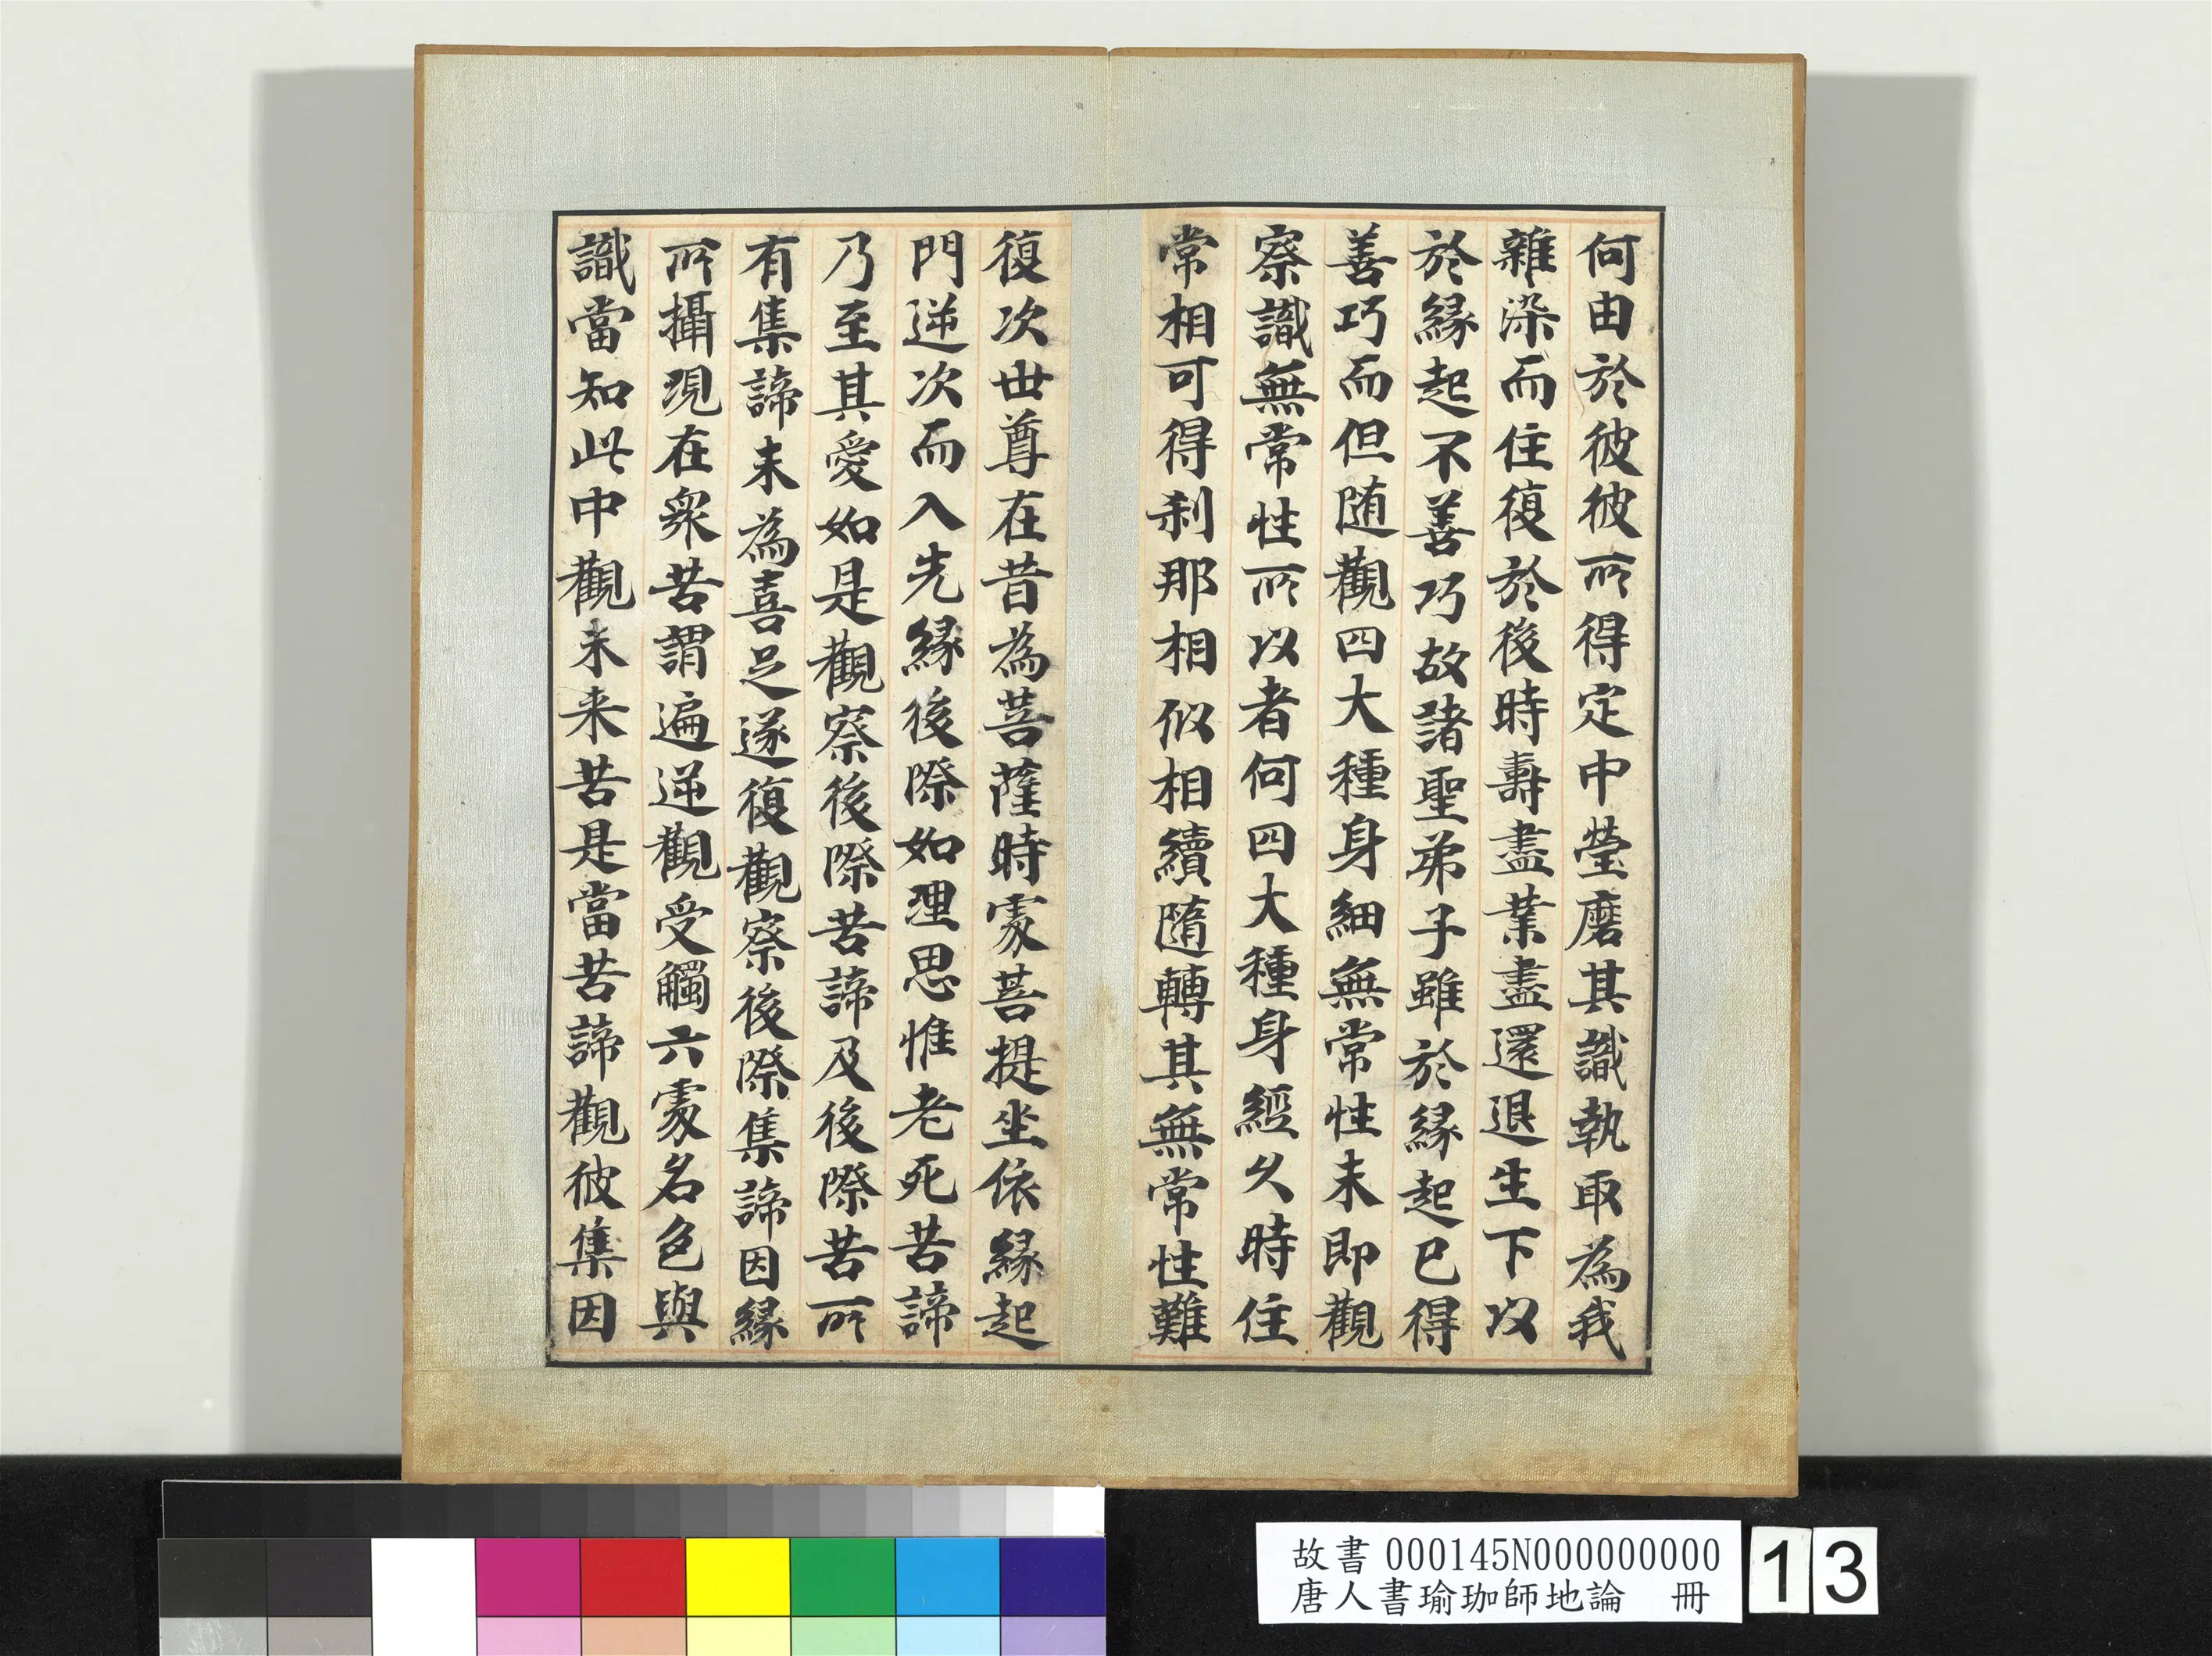 何由於彼彼所得定中瑩磨其識執取為我
雜染而住復於後時壽盡業盡還退生下以
於緣起不善巧故諸聖弟子雖於緣起已得
善巧而但随觀四大種身細無常性未即觀
察識無常性所以者何四大種身經久時住
常相可得刹那相似相續隨轉其無常性難
復次世尊在昔為菩薩時處菩提坐依緣起
門逆次而入先緣後際如理思惟老死苦諦
乃至其愛如是觀察後際苦諦及後際苦所
有集諦未為喜足遂復觀察後際集諦因緣
所攝現在眾苦謂遍逆觀受觸六處名色與
識當知此中觀未来苦是當苦諦觀彼集因
故書 000145N000000000
唐人書瑜珈師地論 冊
13